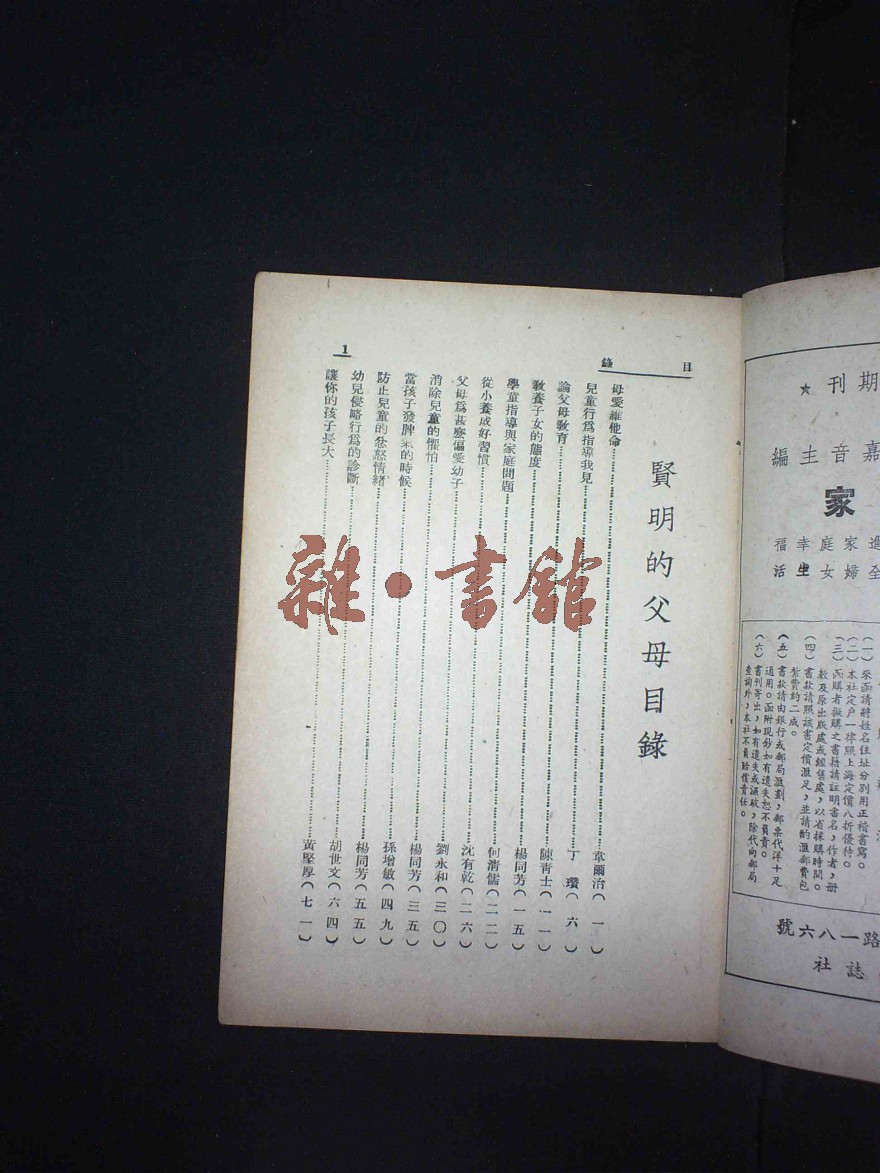 目錄
1
賢明的父母目錄
母愛維他命……韋爾治(一)
兒童行為指導我見……丁瓚(六)
論父母教育……陳青士(一一)
教養子女的態度……楊同芳(一五)
學童指導與家庭問題……何清儒(二二)
從小養成好習慣……沈有乾(二六)
父母為甚麼偏愛幼子……劉永和(三〇)
消除兒童的懼怕……楊同芳(三五)
當孩子發脾氣的時候……孫增敏(四九)
防止兒童的忿怒情緒……楊同芳(五五)
幼兒侵略行為的診斷……胡世文(六四)
讓你的孩子長大……黃堅厚(七一)
雜·書館
期刊★
嘉音主編
家
進家庭幸福
全婦女生活
(一)來函請將姓名住址分別用正楷書寫。
(二)本社定戶一律照上海定價八折優待。
(三)函購者擬購之書籍請註明書名,作者,冊
數及原出版處或經售處,以省採購時間。
(四)書款請照該書定價滙足,並請酌滙郵費包
紮費約二成。
(五)書款請由銀行或郵局滙劃,郵票代洋十足
通用。函附現鈔如有遺失恕不負責。
(六)書刊寄出,如有遺失或滅破,除代向郵局
查詢外,本社不負賠償責任。
路一八六號
誌社